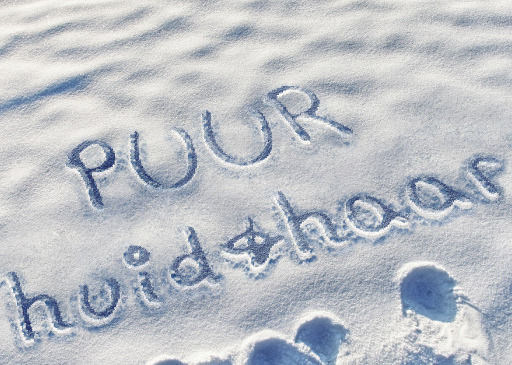 PUUR
huid & haar